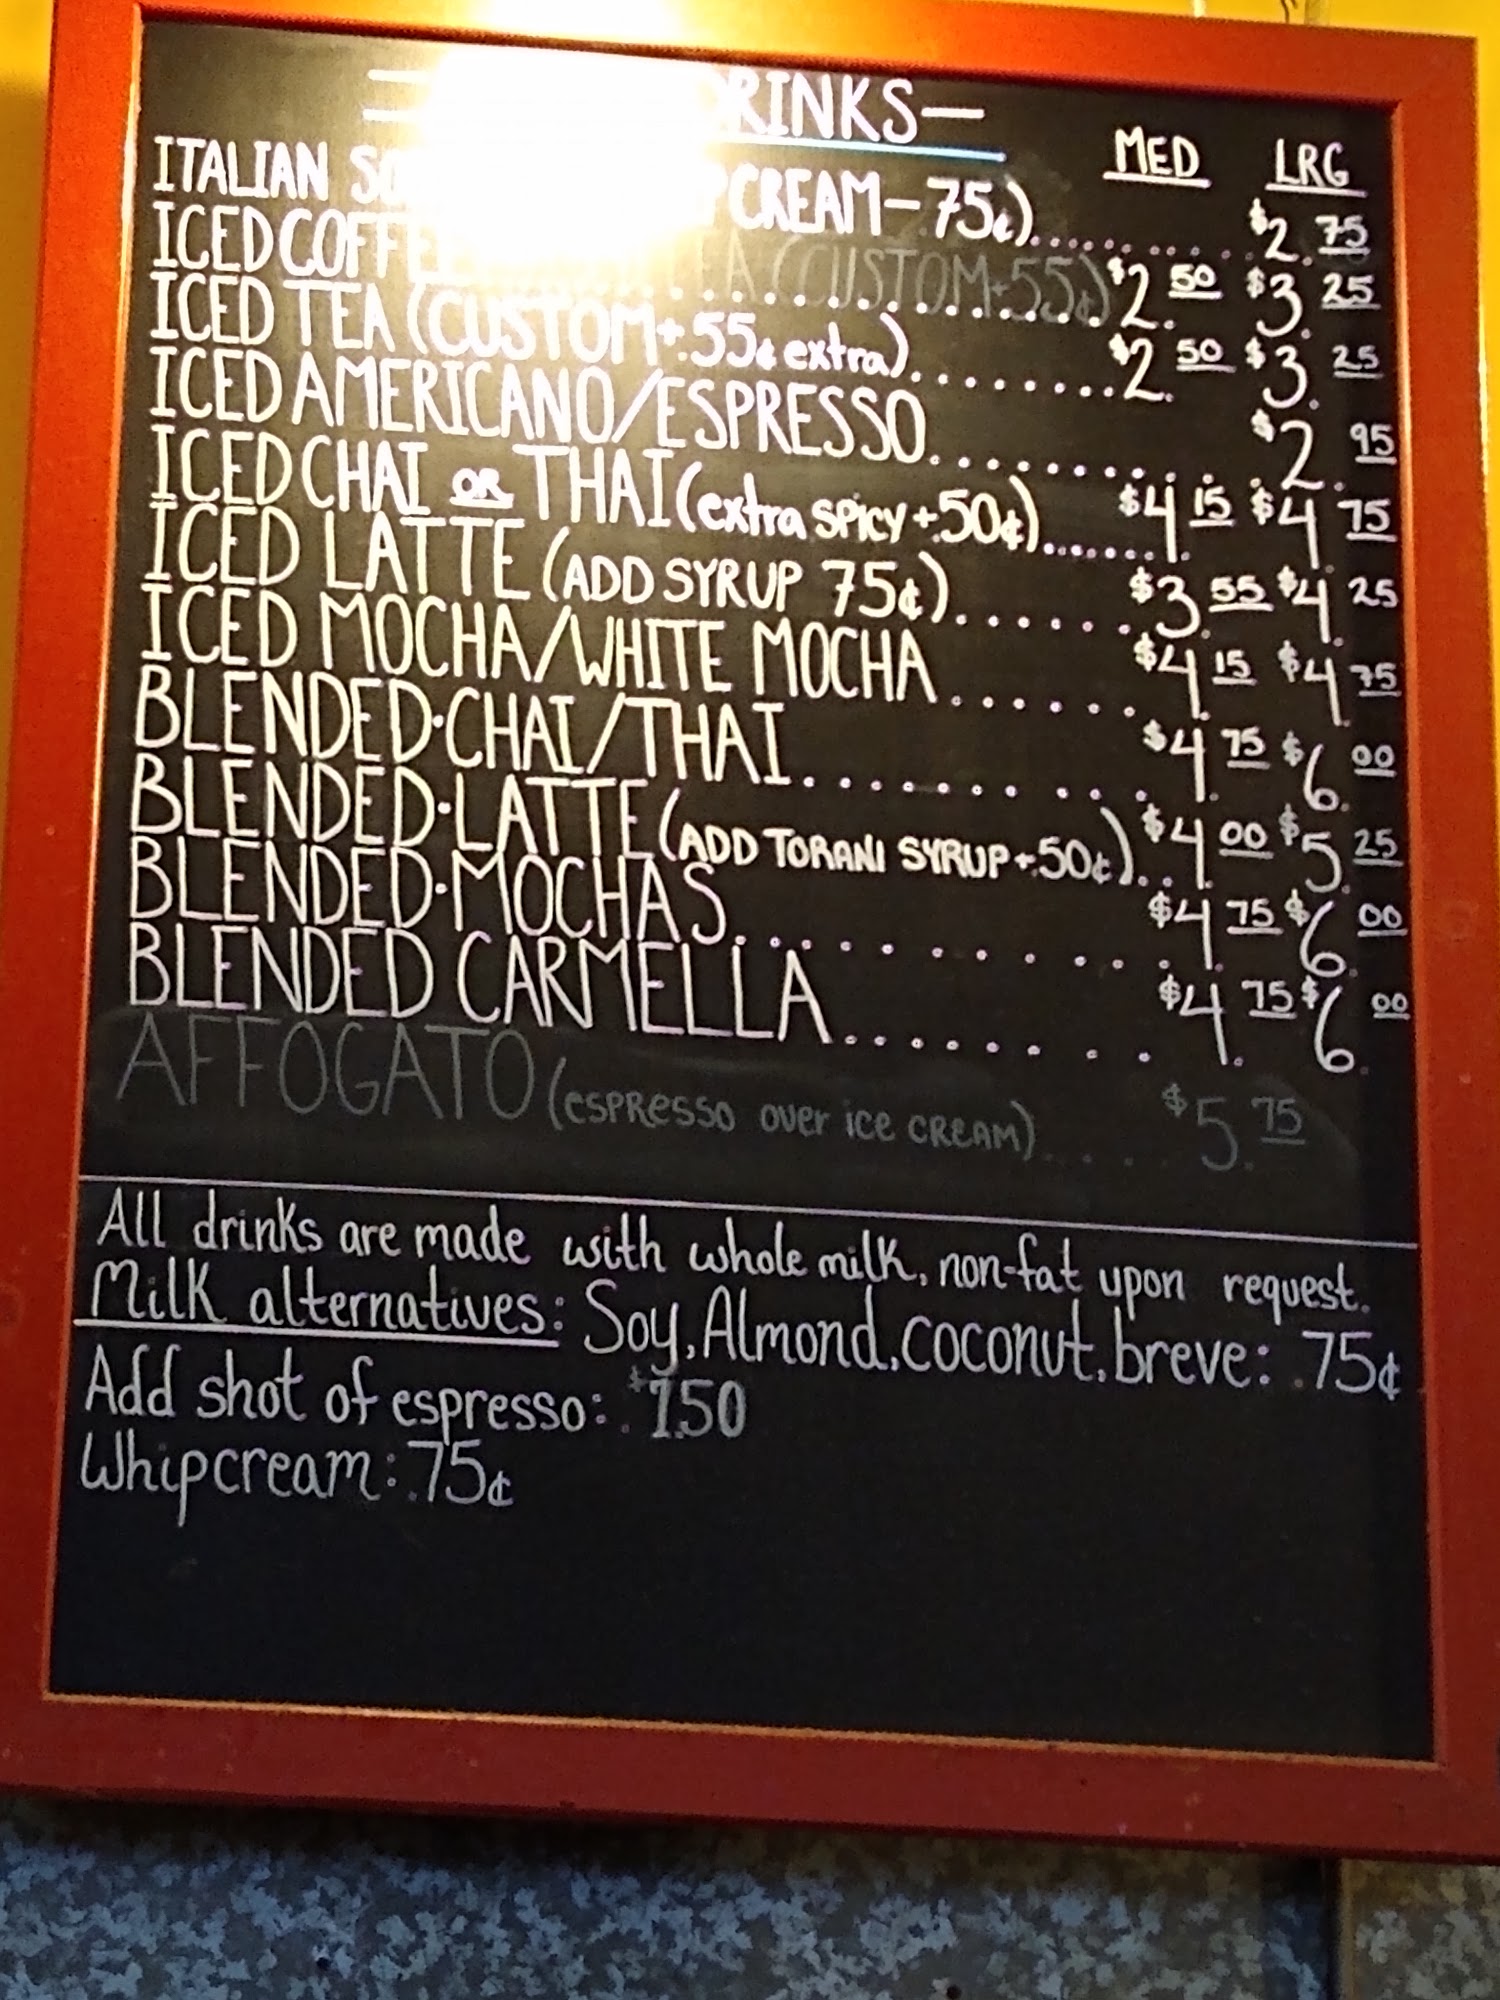 DRINKS
MED LRG
ITALIAN CREAM - 75¢) $2.75
ICED COFFEE $2.50 $3.25
TEA (CUSTOM + 55¢)
ICED TEA (CUSTOM + .55¢ extra) $2.50 $3.25
ICED AMERICANO/ESPRESSO $2.95
ICED CHAI OR THAI (extra SPICY + .50¢) $4.15 $4.75
ICED LATTE (ADD SYRUP 75¢) $3.55 $4.25
ICED MOCHA/WHITE MOCHA $4.15 $4.75
BLENDED·CHAI/THAI $4.75 $6.00
BLENDED·LATTE (ADD TORANI SYRUP + .50¢) $4.00 $5.25
BLENDED·MOCHAS $4.75 $6.00
BLENDED CARMELLA $4.75 $6.00
AFFOGATO (ESPRESSO over ice CREAM) $5.75
All drinks are made with whole milk, non-fat upon request.
Milk alternatives: Soy, Almond, coconut, breve: .75¢
Add shot of espresso: $1.50
Whipcream: .75¢